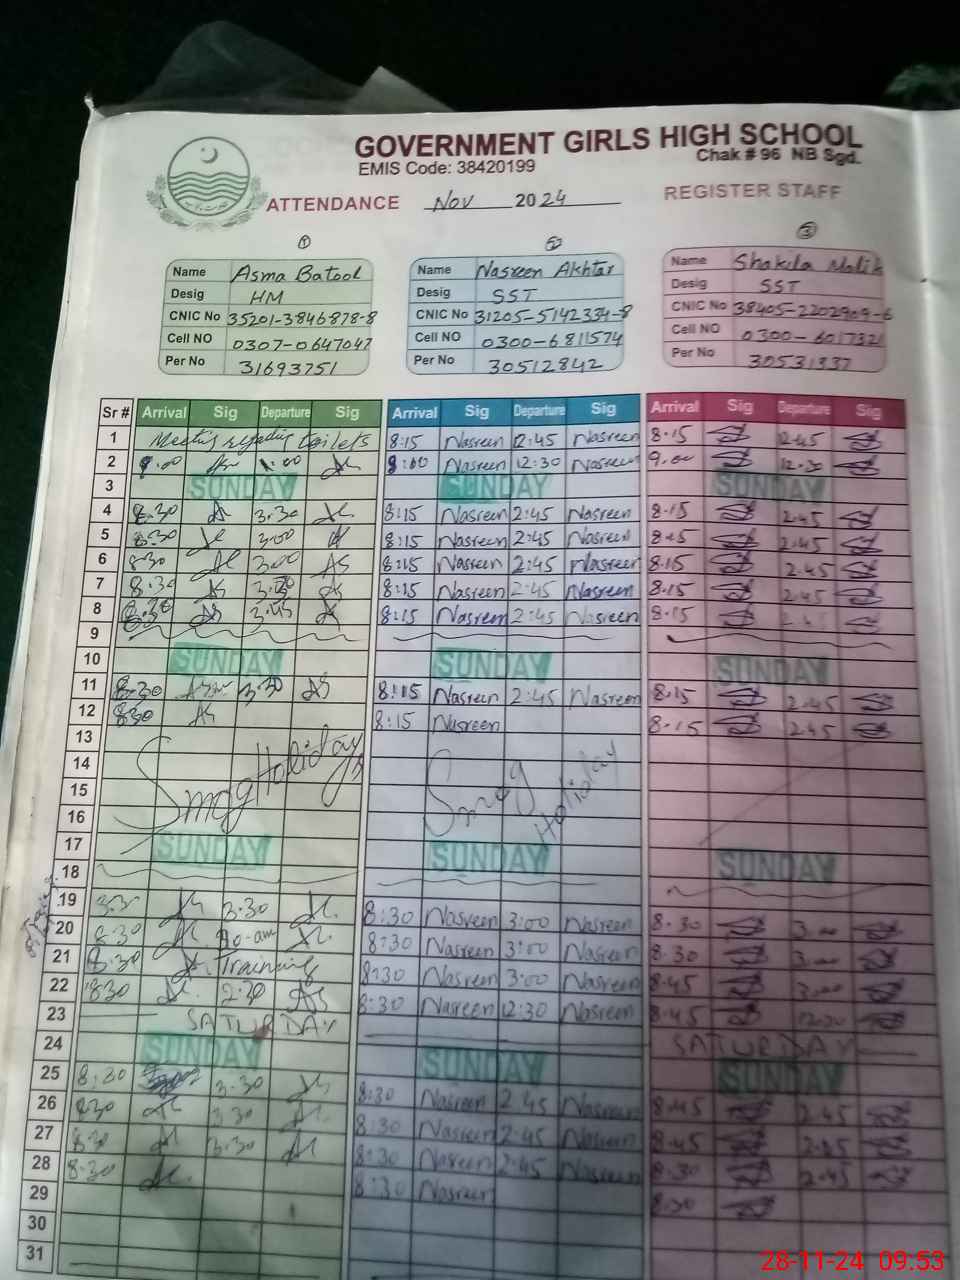 GOVERNMENT GIRLS HIGH SCHOOL
EMIS Code: 38420199 Chak # 96 NB Sgd.
ATTENDANCE Nov 2024 REGISTER STAFF
1 2 3
Name Asma Batool Name Nasreen Akhtar Name Shakila Malik
Desig HM Desig SST Desig SST
CNIC No 35201-3846878-8 CNIC No 31205-5142334-8 CNIC No 38405-2202909-6
Cell NO 0307-0647047 Cell NO 0300-6811574 Cell NO 0300-6017321
Per No 31693751 Per No 30512842 Per No 30531937
Sr # Arrival Sig Departure Sig Arrival Sig Departure Sig Arrival Sig Departure Sig
1 Meeting regarding toilets 8:15 Nasreen 12:45 Nasreen 8.15 12.45
2 9.00 1.00 8:00 Nasreen 12:30 Nasreen 9.00 12.30
3 SUNDAY SUNDAY SUNDAY
4 8.30 3.30 8:15 Nasreen 2:45 Nasreen 8.15 2.45
5 8.30 3.00 8:15 Nasreen 2:45 Nasreen 8.15 2.45
6 8.30 3.00 AS 8:15 Nasreen 2:45 Nasreen 8.15 2.45
7 8.30 AS 8:15 Nasreen 2:45 Nasreen 8.15 2.45
8 8.30 AS 8:15 Nasreen 2:45 Nasreen 8.15 2.45
9
10 SUNDAY SUNDAY SUNDAY
11 8.30 3.30 AS 8:15 Nasreen 2:45 Nasreen 8.15 2.45
12 8.30 AS 8:15 Nasreen 8.15 2.45
13
14 Smog Holiday Smog Holiday
15
16
17 SUNDAY SUNDAY SUNDAY
18
19 3.30 8:30 Nasreen 3:00 Nasreen 8.30 3.00
20 8.30 8:30 Nasreen 3:00 Nasreen 8.30 3.00
21 8.30 Training 8:30 Nasreen 3:00 Nasreen 8.45 3.00
22 8.30 2.30 AS 8:30 Nasreen 12:30 Nasreen 8.45 12.30
23 SATURDAY SATURDAY
24 SUNDAY SUNDAY SUNDAY
25 8.30 3.30 8:30 Nasreen 2:45 Nasreen 8.45 2.45
26 8.30 3.30 8:30 Nasreen 2:45 Nasreen 8.45 2.45
27 8.30 3.30 8:30 Nasreen 2:45 Nasreen 8.30 2.45
28 8.30 8:30 Nasreen 8.30
29
30
31
28-11-24 09.53